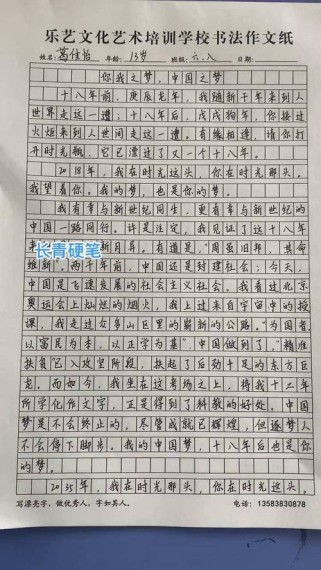 乐艺文化艺术培训学校书法作文纸
姓名: 葛佳怡 年龄: 13岁 班级: 六.八 日期:
你我之梦,中国之梦
十八年前,庚辰龙年,我随新千年来到人
世界走这一遭;十八年后,戊戌狗年,你接过
火炬来到人世间走这一遭。有缘相逢,请你打
开时光瓶,它已漂过了又一个十八年。
2018年,我在时光这头,你在时光那头。
我望着你。我的梦,也是你的梦。
我有幸与新世纪同生,更有幸与新世纪的
中国一路同行。许是注定,我见证了这十八年
新月异。有道是,"周虽旧邦,其命
长青硬笔
维新"。两千年前,中国还是封建社会;今天,
中国是飞速发展的社会主义社会。我看过北京
奥运会上灿烂的烟火,我上过来自宇宙中的授
课,我走过众多山巨里的崭新的公路。"为国者,
以富民为本,以正学为基"中国做到了,"精准
扶贫"已入攻坚阶段,扶起了后劲十足的东方巨
龙。而如今,我坐在这考场之上,将我十二年
所学化作文字,正是得到了科教的好处。中国
梦是不会终止的,尽管成就已辉煌,但逐梦人
不会停下脚步。我的中国梦,十八年后也是你
的梦。
2035年,我在时光那头,你在时光这头。
写漂亮字,做优秀人,字如其人。 电话:13583830878